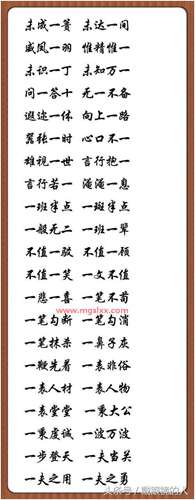 未成一篑 未达一间
威凤一羽 惟精惟一
未识一丁 未知万一
问一答十 无一不备
遐迩一体 向上一路
嚣张一时 心口不一
雄视一世 言行抱一
言行若一 淹淹一息
一班半点 一斑半点
一般无二 一班一辈
不值一驳 不值一顾
不值一笑 一文不值
一悲一喜 一笔不苟
www.mgslxx.com
一笔勾断 一笔勾消
一笔抹杀 一鼻子灰
一鞭先着 一表非俗
一表人材 一表人物
一表堂堂 一秉大公
一秉虔诚 一波万波
一步登天 一夫当关
一夫之用 一夫之勇
头条号